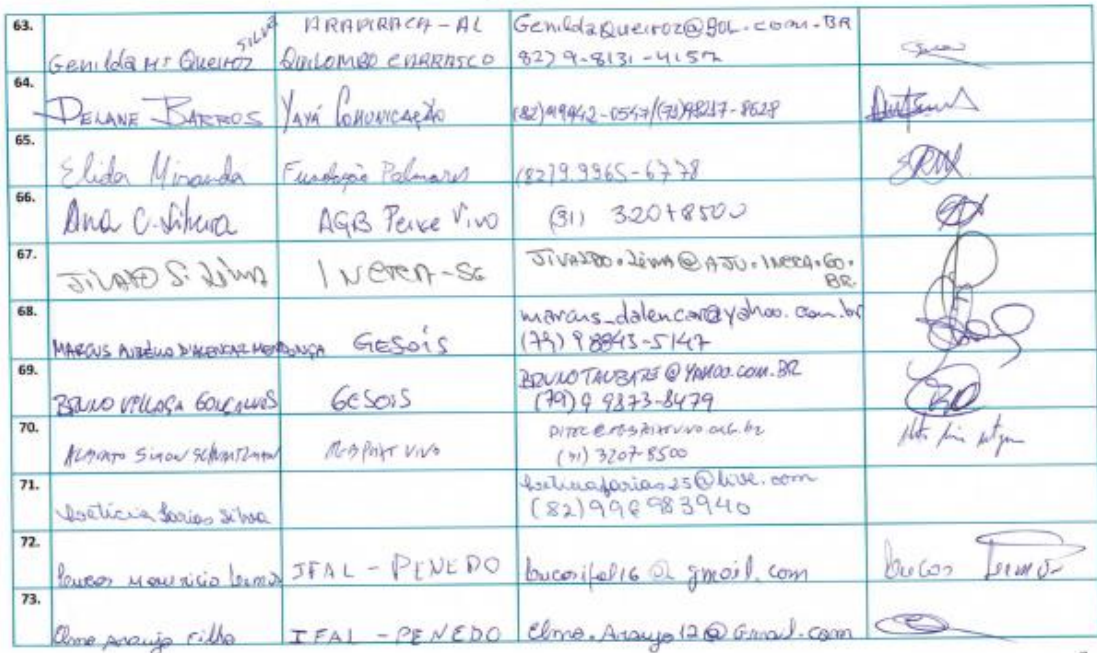 63. Genilda Mª Queiroz Silva ARAPIRACA-AL QUILOMBO CARRASCO GenildaQueiroz@BOL.com.BR 82) 9-8131-4157
64. DELANE BARROS YAYÁ COMUNICAÇÃO (82)99942-0547/(73)98237-8628
65. Elida Miranda Fundação Palmares (82)9.9965-6778
66. Ana C. Silveira AGB Peixe Vivo (31) 32078500
67. INCRA-SE
68. MARCUS AURÉLIO D'ALENCAR MENDONÇA GESOIS marcus_dalencar@yahoo.com.br (79) 9 8843-5147
69. BRUNO VILLAÇA GONÇALVES GESOIS BRUNOTAUBATE@YAHOO.COM.BR (79) 9 9873-8479
70. ALBERTO SIMON SCHVARTZMAN (31) 3207-8500
71. Letícia Farias Silva leticiafarias25@live.com (82)999983940
72. Lucas IFAL - PENEDO lucasifal16@gmail.com Lucas
73. Elmo Araujo Filho IFAL - PENEDO Elmo.Araujo12@Gmail.com